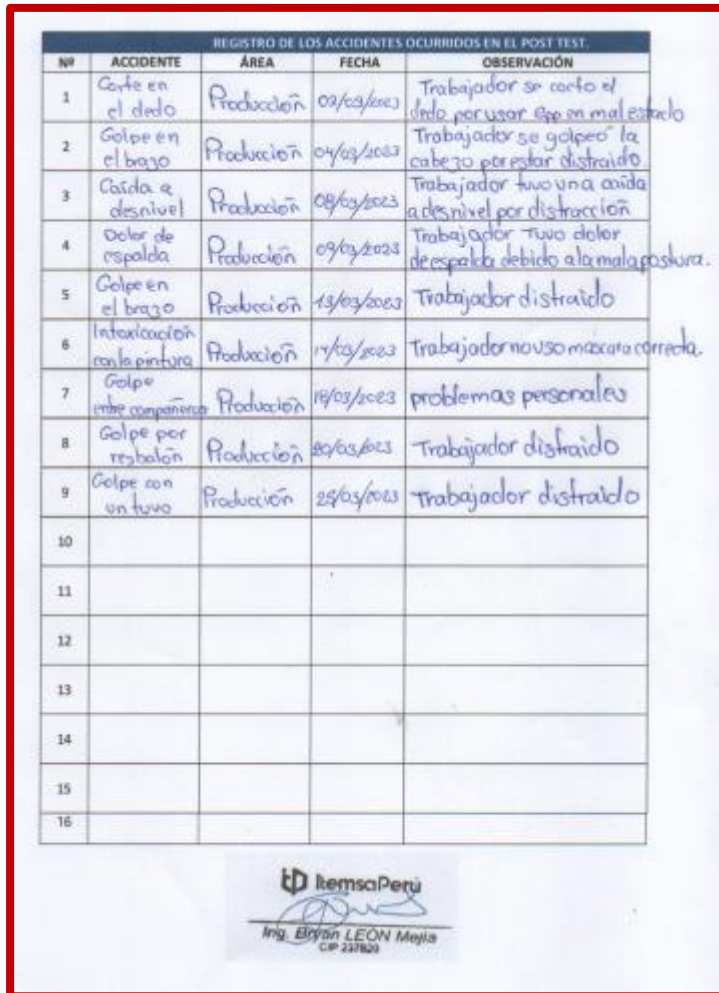 REGISTRO DE LOS ACCIDENTES OCURRIDOS EN EL POST TEST.
Nº ACCIDENTE ÁREA FECHA OBSERVACIÓN
1 Corte en el dedo Producción 02/03/2023 Trabajador se corto el
dedo por usar Epp en mal estado
2 Golpe en el bazo Producción 04/03/2023 Trabajador se golpeó la
cabeza por estar distraido
3 Caída a desnivel Producción 08/03/2023 Trabajador tuvo una caída
a desnivel por distracción
4 Dolor de espalda Producción 09/03/2023 Trabajador tuvo dolor
de espalda debido a la mala postura.
5 Golpe en el brazo Producción 13/03/2023 Trabajador distraido
6 Intoxicación con la pintura Producción 14/03/2023 Trabajador no uso mascara correcta.
7 Golpe entre compañeros Producción 18/03/2023 problemas personales
8 Golpe por resbalón Producción 20/03/2023 Trabajador distraido
9 Golpe con un tuvo Producción 25/03/2023 Trabajador distraido
10
11
12
13
14
15
16
ItemsaPerú
Ing. Bryan LEÓN Mejia
CIP 237820